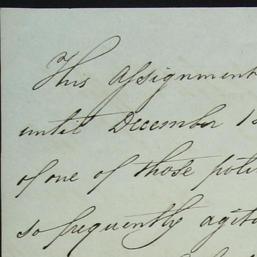 This Assignment
until December 1
of one of those
so frequently